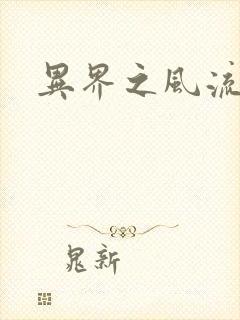 異界之風流
晁新